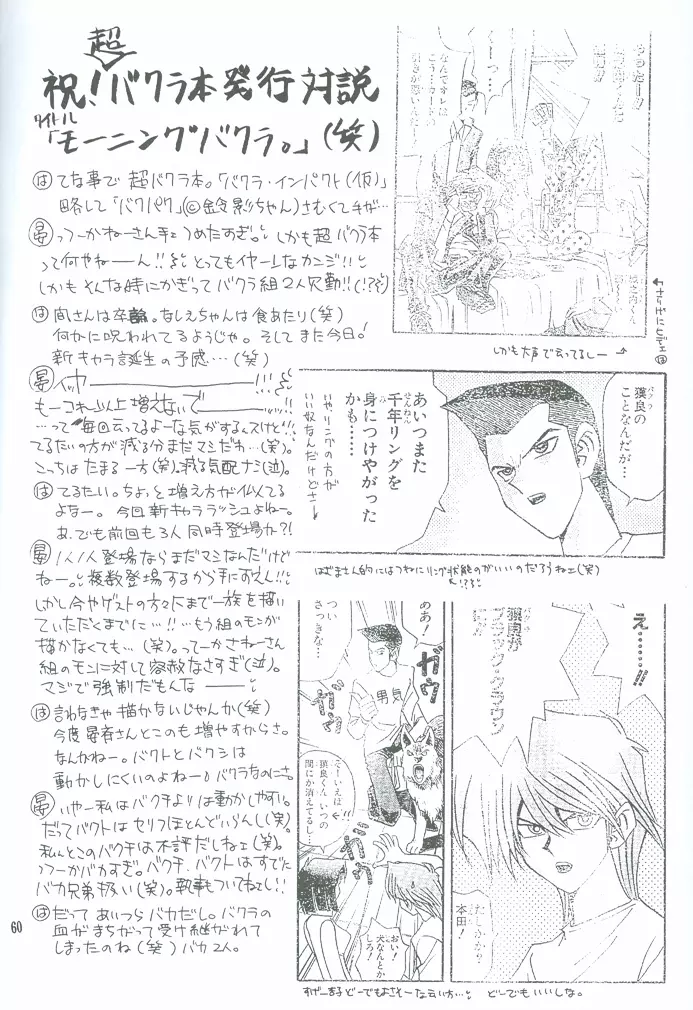 超
祝!バクラ本発行対説
タイトル
「モーニングバクラ。」(笑)
は てな事で 超バクラ本。「バクラ・インパクト(仮)」
略して「バクパク」
さむくてチガ…
晏 っつーかねーさん手エつめたすぎ。しかも超バクラ本
って何やねーん!!とってもイヤーンなカンジ!!
しかもそんな時にかぎってバクラ組2人欠勤!!(!??)
は 尚さんは卒論。なしえちゃんは食あたり(笑)
何かに呪われてるようじゃ。そしてまた今日!
新キャラ誕生の予感…(笑)
晏 イッヤー!!!
もーコれ以上増えないでー!!
…って毎回云ってるよーな気がするんですけど!!
てるたいの方が減る分まだマシだわ…(笑)。
こっちはたまる一方(笑)。減る気配ナシ(泣)。
は てるたい。ちょっと増え方が似てる
よなー。今回新キャララッシュよねー。
あ、でも前回も3人同時登場か?!
晏 1人1人登場ならまだマシなんだけど
ねー。複数登場するから手にオえん!!
しかし今やゲストの方々にまで一族を描い
ていただくまでに…!!…もう組のモンが
描かなくても…(笑)。ってーかさねーさん
組のモンに対して容赦なさすぎ(泣)。
マジで強制だもんなー
は 言わなきゃ描かないじゃんか(笑)
今度晏斉さんとこのも増やすからさ。
なんかねー。バクトとバクシは
動かしにくいのよねー。バクラなのにさ。
晏 いやー私はバクチよりは動かしやすい。
だってバクトはセリフほとんどいらんし(笑)。
私んとこのバクチは不評だしねェ(笑)。
っつーかバカすぎ。バクチ、バクトはすでに
バカ兄弟扱い(笑)。執事もついてねェし!!
は だって あいつらバカだし。バクラの
血がまちがって受け継がれて
しまったのね(笑)バカ2人。
60
やったー!!
なんでオレは
こう…カード
引きが悪いんだ
く…っ…
城之内くん
しかも大声で云ってるしー
さりげにヒデェ は
獏良の
バクラ
ことなんだが…
あいつまた
千年リングを
せんねん
身につけやがった
み
かも……
いやリングの方が
いい奴なんだけどさー
はざまさん的にはつねにリング状態のがいいのだろうねェ(笑)
え!??
ああ!
つい
さっきな…
ガウ
ガウ
男気
そーいえば
獏良くんいつの
間にか消えてるし…
おい!
犬なんとか
しろ!
え……!!
獏良が
ブラック・クラウン
に!?
たしかか?
本田!
すげーまるどーでもよさそーな云い方…
どーでもいいしな。